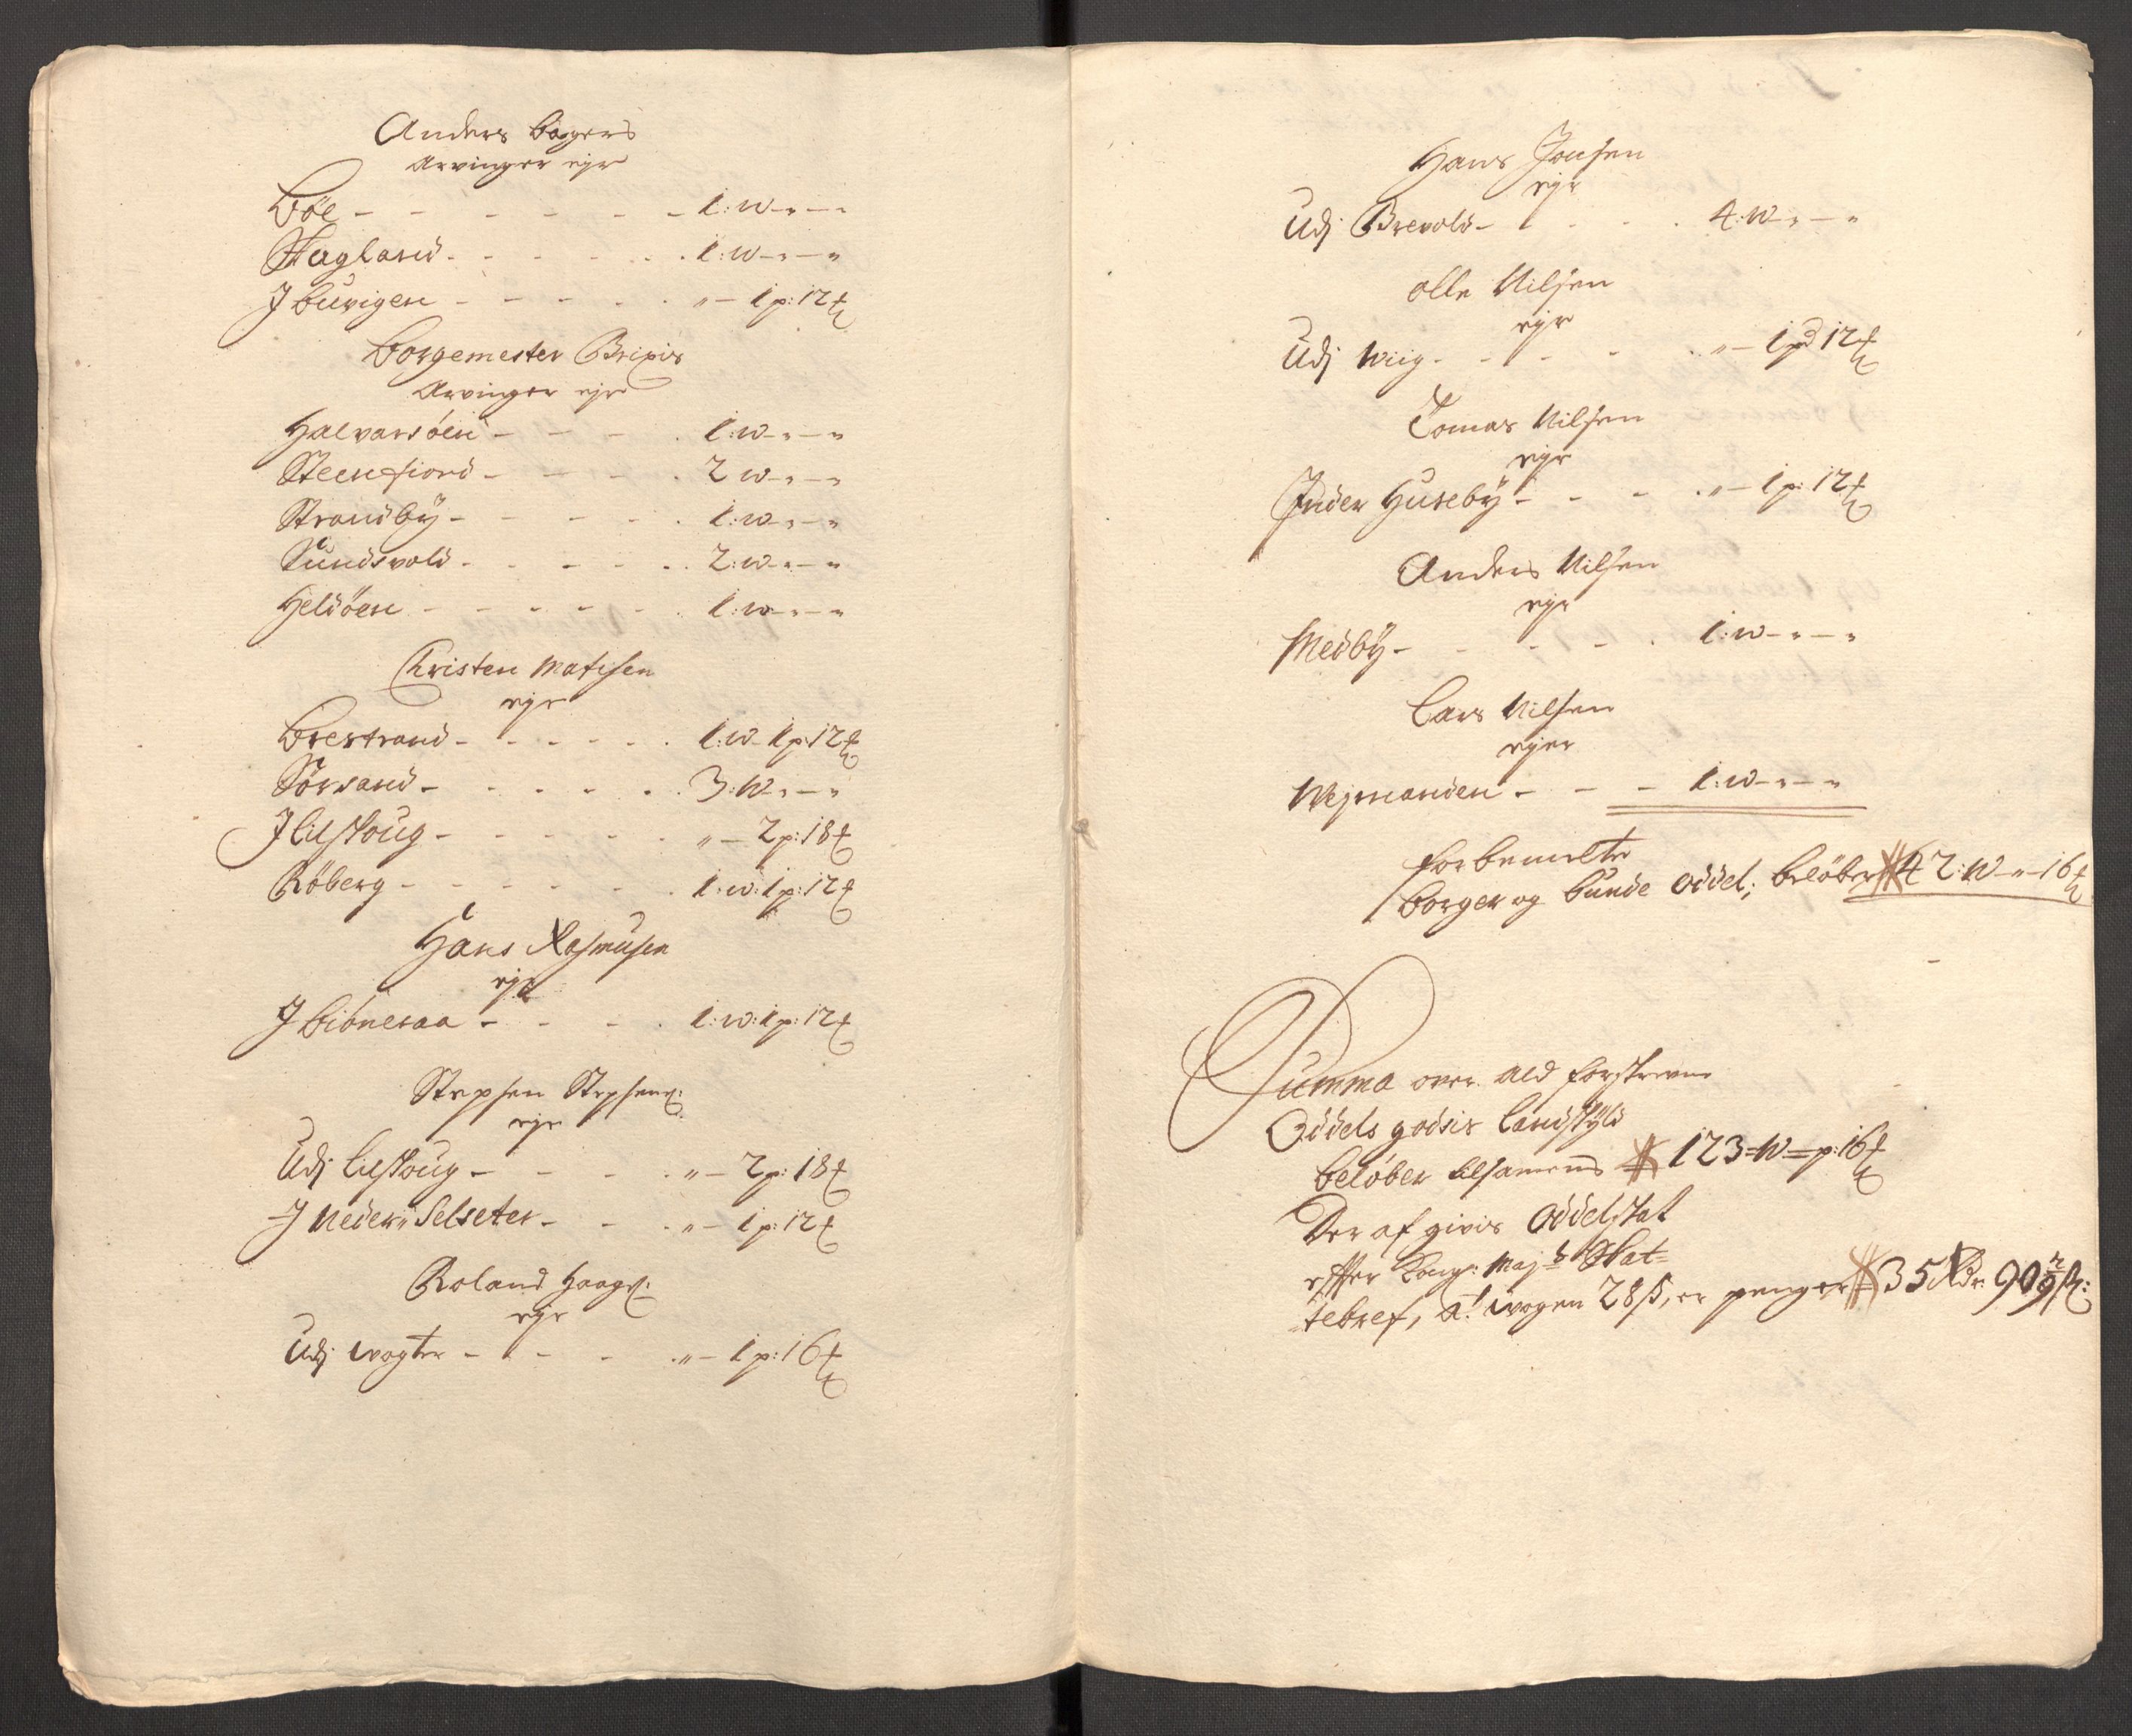 Anders Baggers
Arvinger ejr
Böe - - - - - - 1: w - " - "
Hagland - - - - - 1: w - " - "
J buvigen - - - - - " - 1 p: 12 ℔
Borgemester Brixis
Arvinger ejr
Halvarsöen - - - - 1: w - " - "
Steensfiord - - - - 2 w - " - "
Strandby - - - - - 1: w - " - "
Sundsvold - - - - - 2: w - " - "
Heldöen - - - - - 1: w - " - "
Christen Matisen
ejr
Brestrand - - - - - 1: w - 1 p: 12 ℔
Sörsand - - - - - 3: w - " - "
J lilskoug - - - - - " - 2 p: 18 ℔
Röberg - - - - - 1: w: 1 p: 12 ℔
Hans Rasmusen
ejr
J Biöneraa - - - - 1: w: 1 p: 12 ℔
Stephen Stephens:
ejr
Udj lilskoug - - - - " - 2 p: 18 ℔
J Neder Selseter - - - " - 1 p: 12 ℔
Roland Haags:
ejr
Udj wogter - - - - " - 1 p: 16 ℔
Hans Jonsen
ejr
Udj Brevold - - - - 4: w - " - "
olle Nilsen
ejr
Udj Wiig - - - - " - 1 pd 12 ℔
Tomas Nilsen
ejr
Inder Huseby - - - - " - 1 p: 12 ℔
Anders Nilsen
ejr
Medby - - - - - 1: w - " - "
Lars Nilsen
ejer
Wejmanden - - - 1: w - " - "
forbemelte
borger og bunde oddel; belöber 42: w - " - 16 ℔
Summa over ald forskrevne
Oddels godsis landskyld
belöber tilsamens 123 = w = p: 16 ℔
Der af givis oddelskat
effter Kong: Maj:ts Skat=
tebref, a! wogen 28 ß, er penger 35 Rdr. 90 2/9 ß: